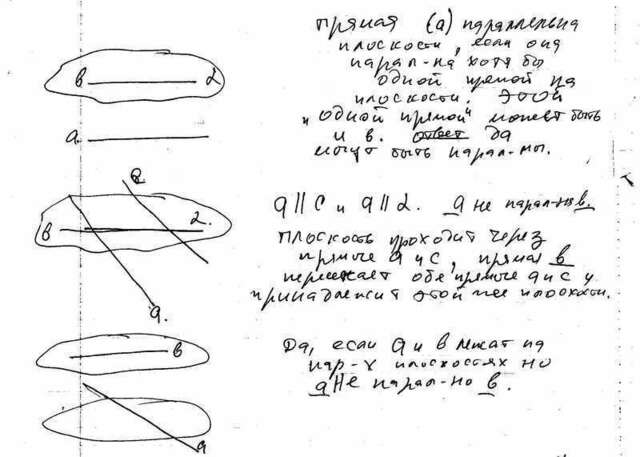 прямая (а) параллельна
плоскости, если она
парал-на хотя бы
одной прямой на
плоскости. этой
"одной прямой" может быть
и в. ответ да
могут быть парал-мы.
в 2
а
а
в 2.
а.
а || с и а || 2. а не парал-но в.
плоскость проходит через
прямые а и с, прямая в
пересекает обе прямые а и с и
принадлежит этой же плоскости.
в
а
Да, если а и в лежат на
пар-х плоскостях но
а не парал-но в.